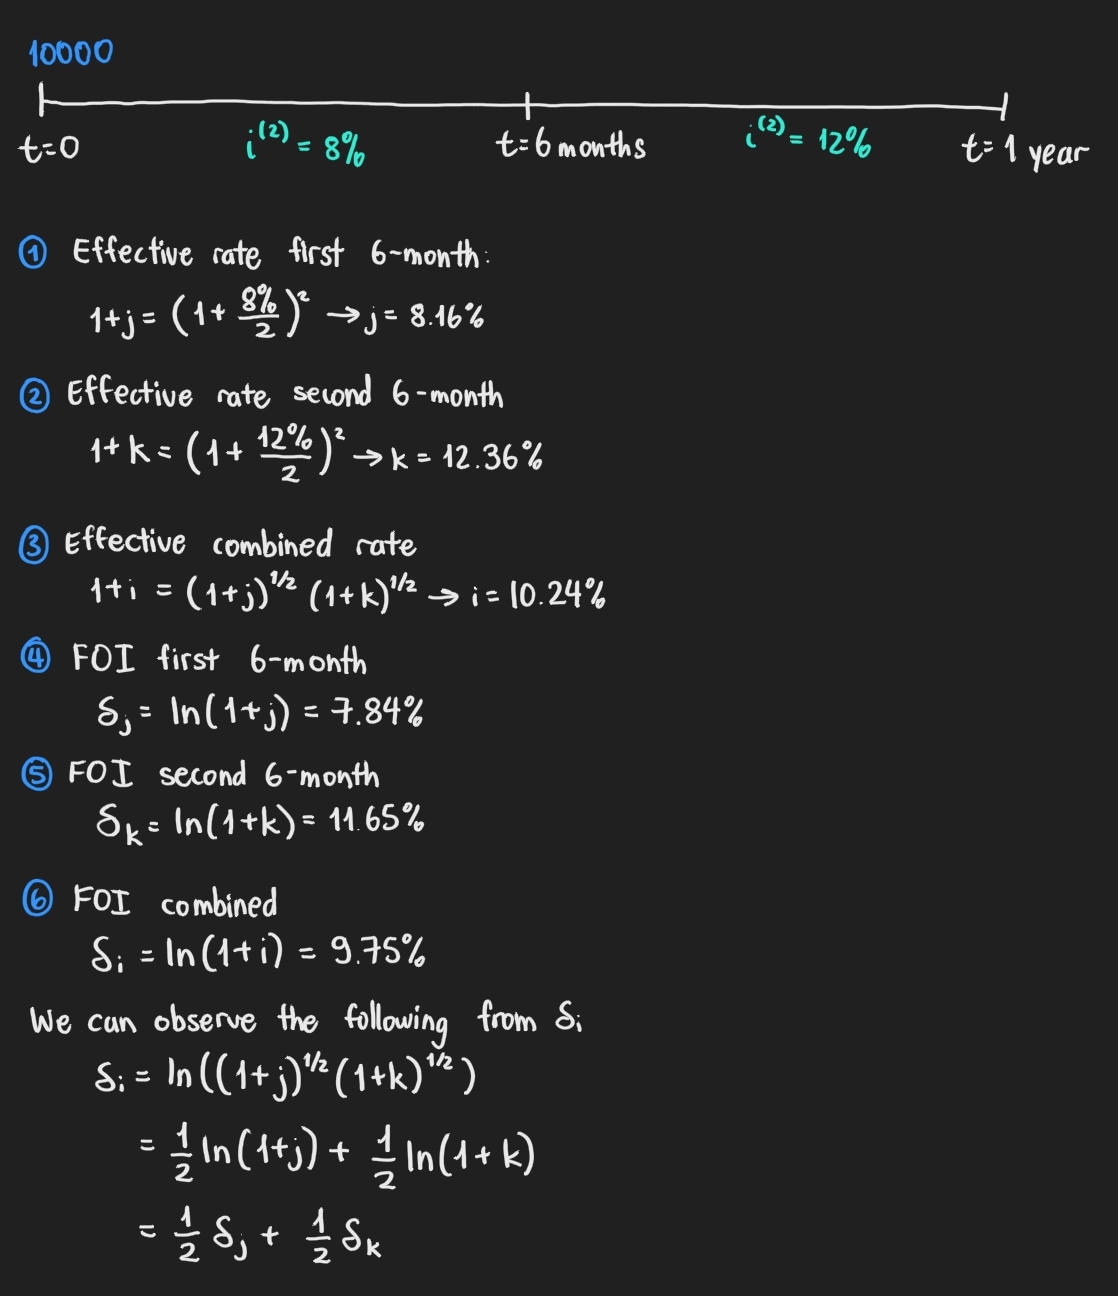 10000
t=0 i^(2) = 8% t=6 months i^(2) = 12% t= 1 year
① Effective rate first 6-month:
1+j = (1 + 8%/2)² → j = 8.16%
② Effective rate second 6-month
1+k = (1 + 12%/2)² → k = 12.36%
③ Effective combined rate
1+i = (1+j)^1/2 (1+k)^1/2 → i = 10.24%
④ FOI first 6-month
δj = ln(1+j) = 7.84%
⑤ FOI second 6-month
δk = ln(1+k) = 11.65%
⑥ FOI combined
δi = ln(1+i) = 9.75%
We can observe the following from δi
δi = ln((1+j)^1/2 (1+k)^1/2)
= 1/2 ln(1+j) + 1/2 ln(1+k)
= 1/2 δj + 1/2 δk